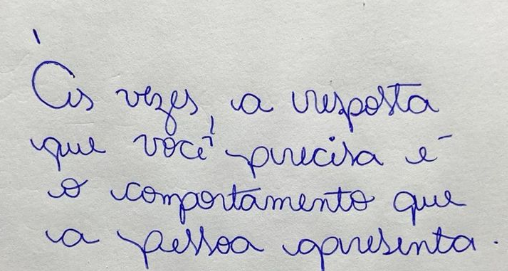 Às vezes, a resposta
que você precisa é
o comportamento que
a pessoa apresenta.